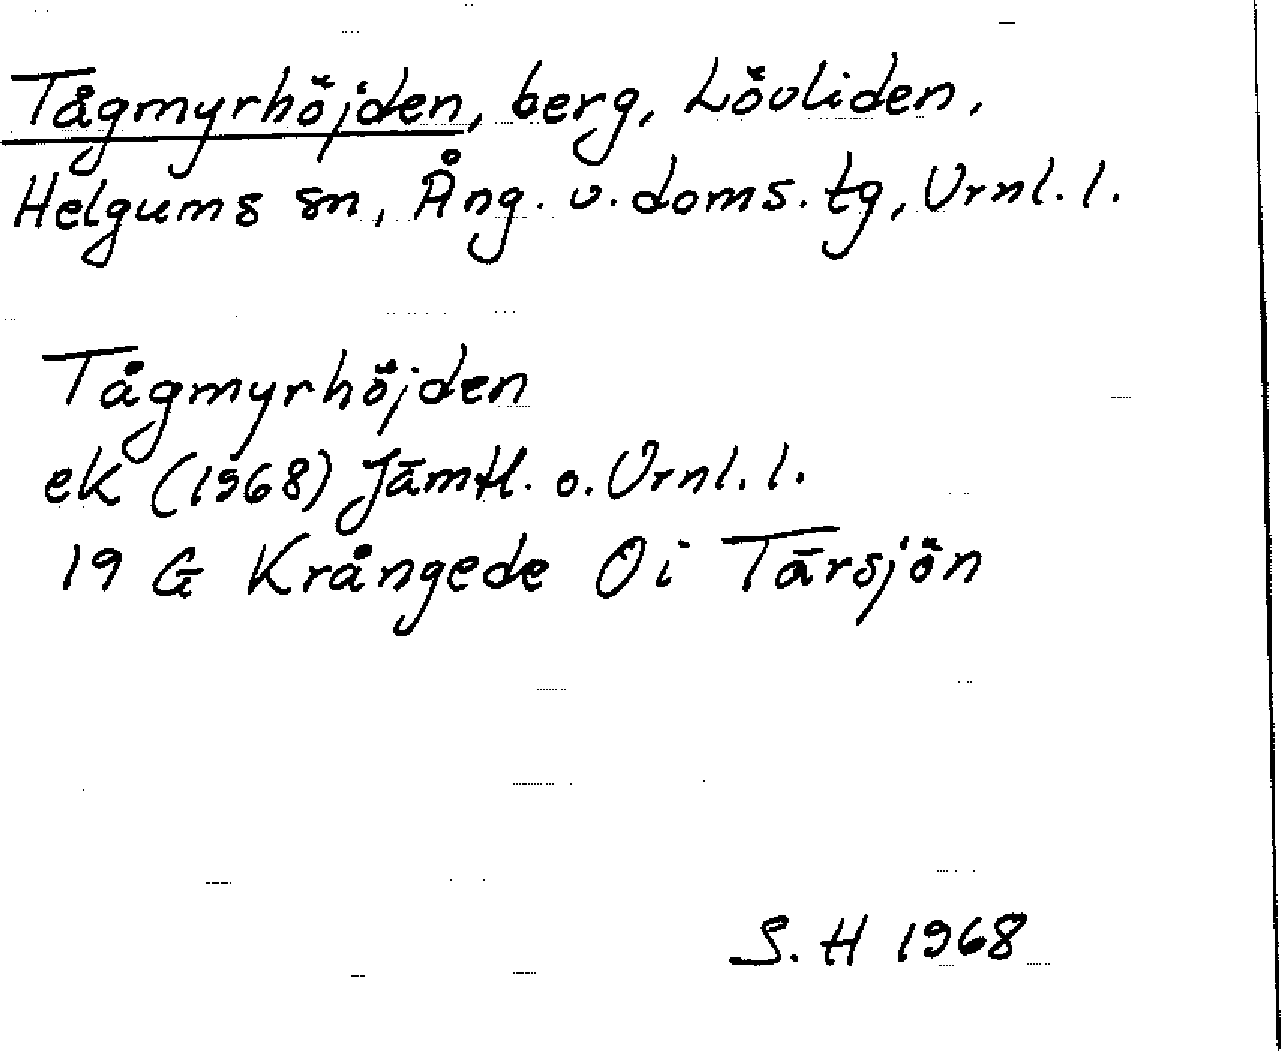 Tågmyrhöjden, berg, Lövliden,
Helgums sn, Ång. v. doms. tg, Vrnl. l.
Tågmyrhöjden
ek (1968) Jämtl. o. Vrnl. l.
19 G Krångede Oi Tärsjön
S. H 1968